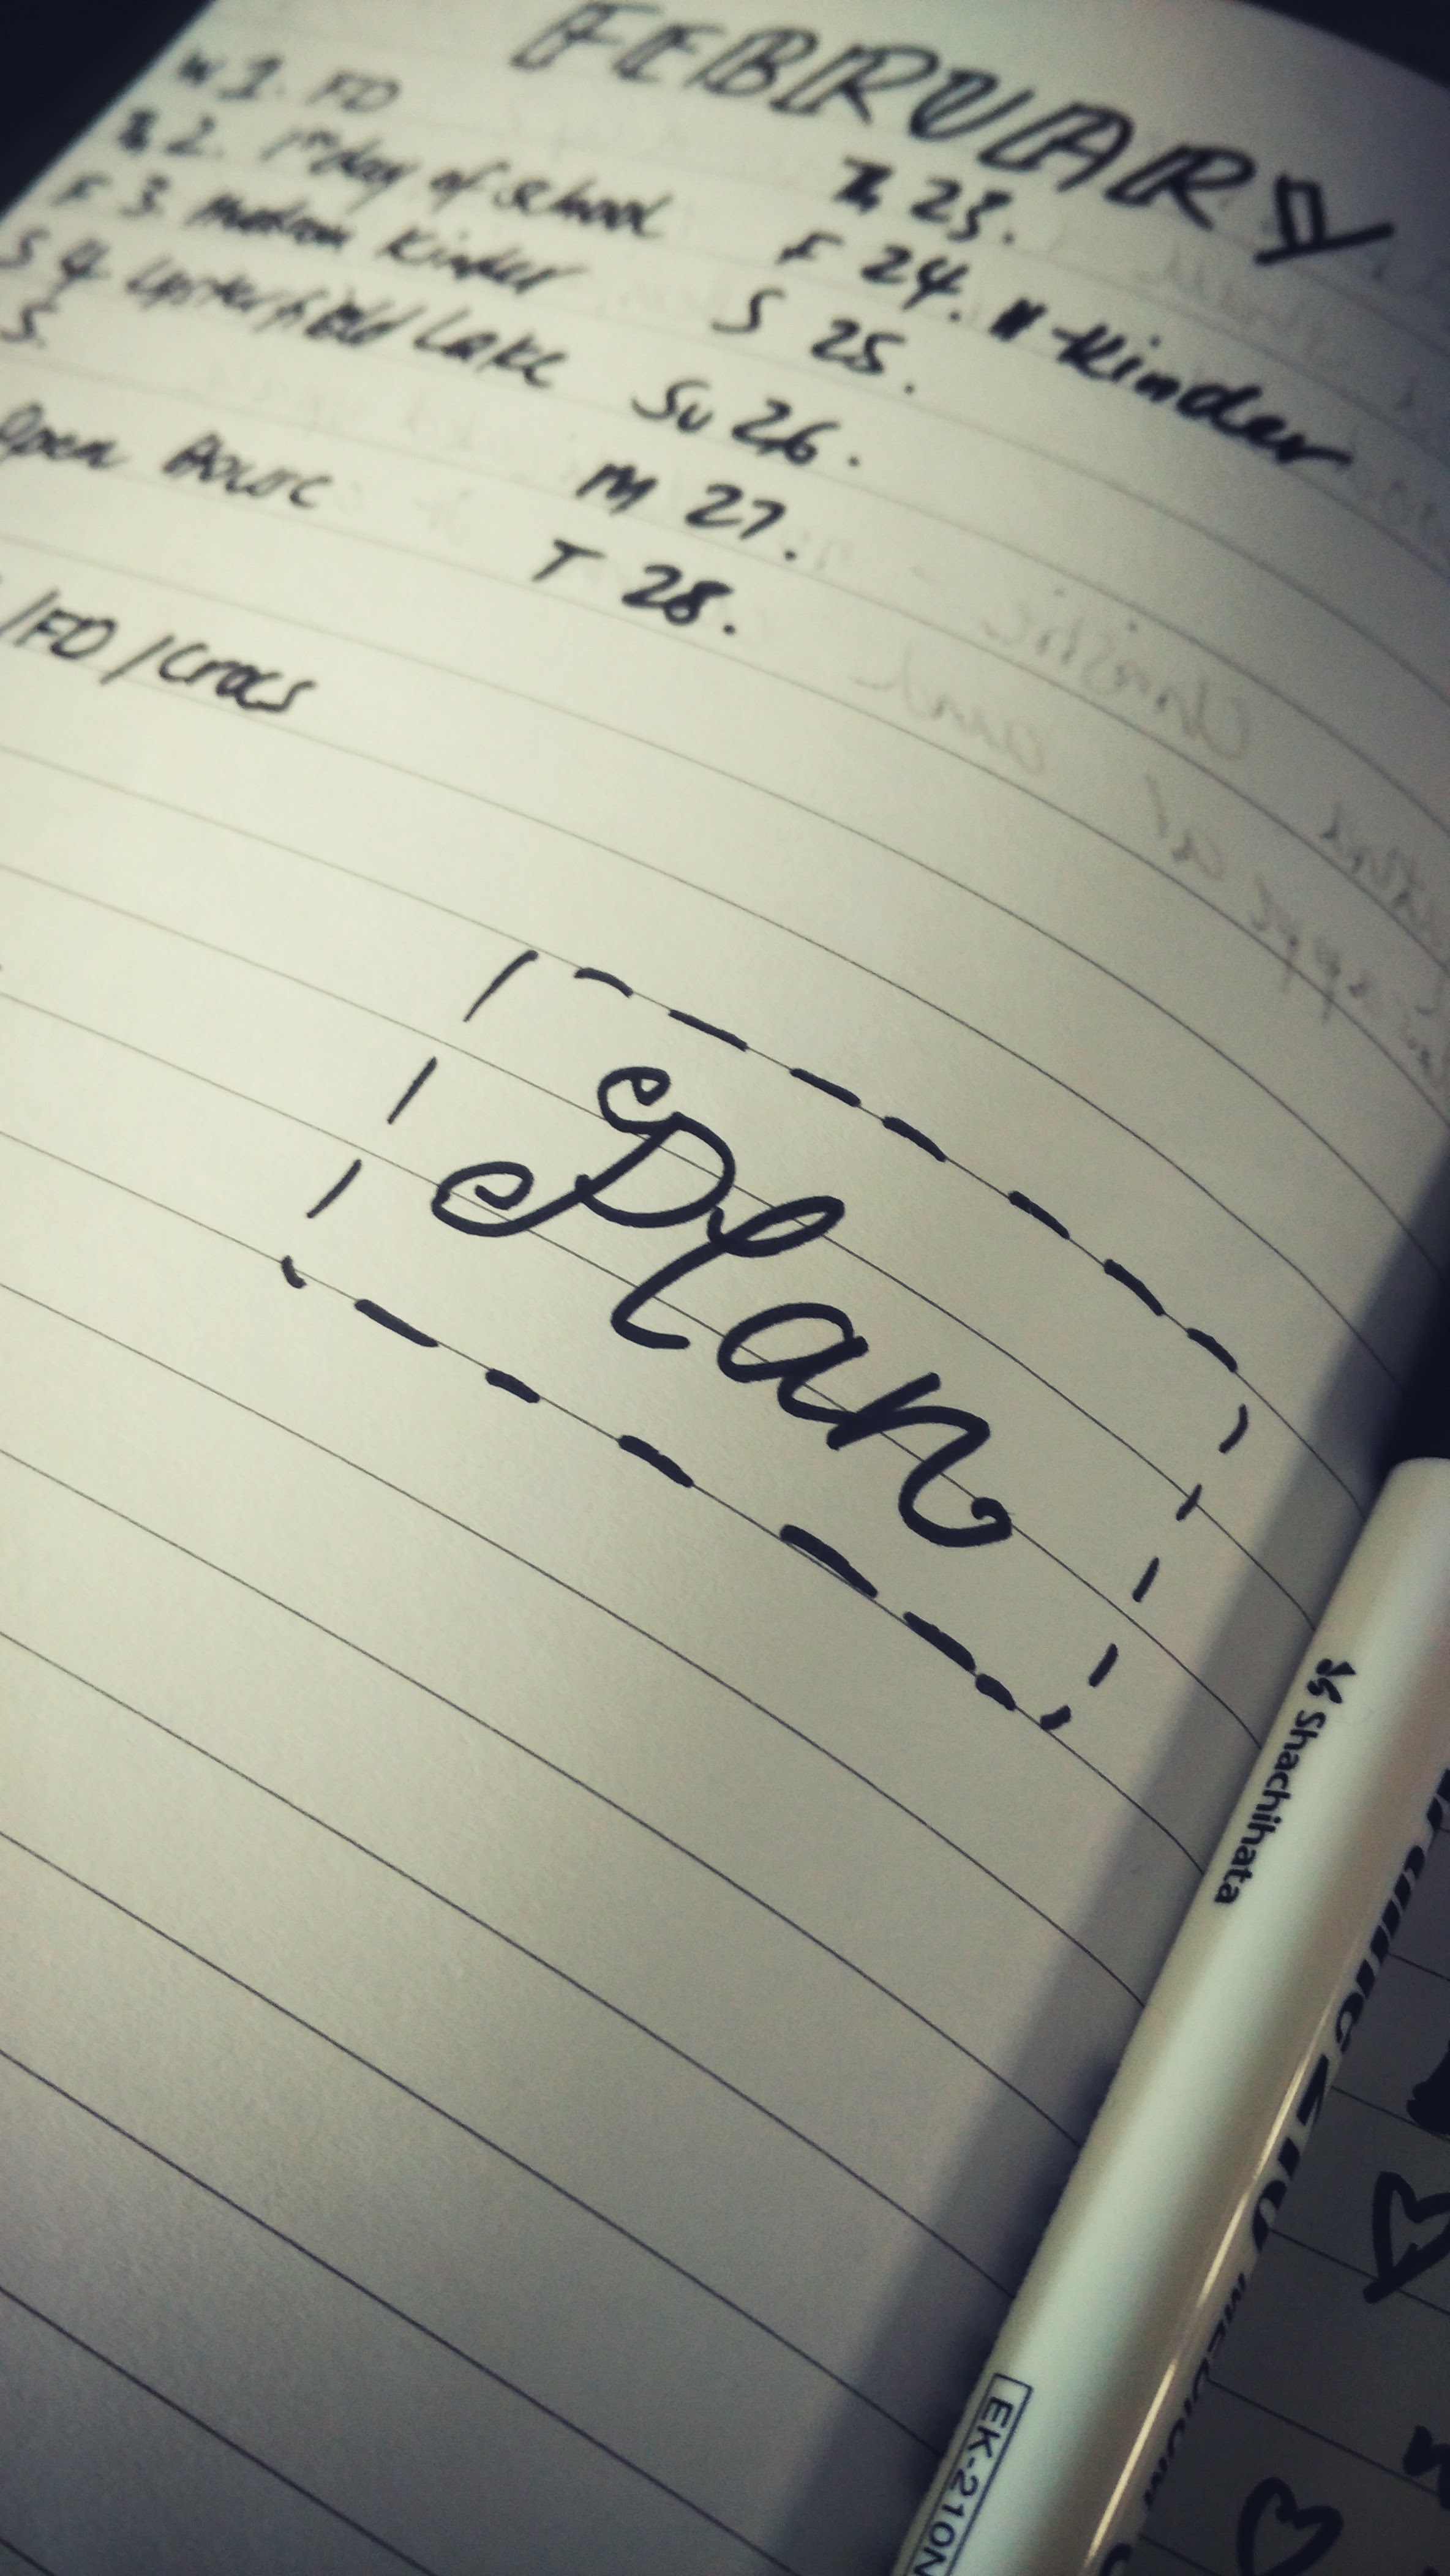 FEBRUARY
W 1. FO
Th 2. 1st day of School
F 3. Hudson Kinder
S 4. Lysterfield Lake
5.
Open House
/FO/Crocs
Th 23.
F 24. H-Kinder
S 25.
Su 26.
M 27.
T 28.
Plan
Shachihata
EK-210N
MEDIUM